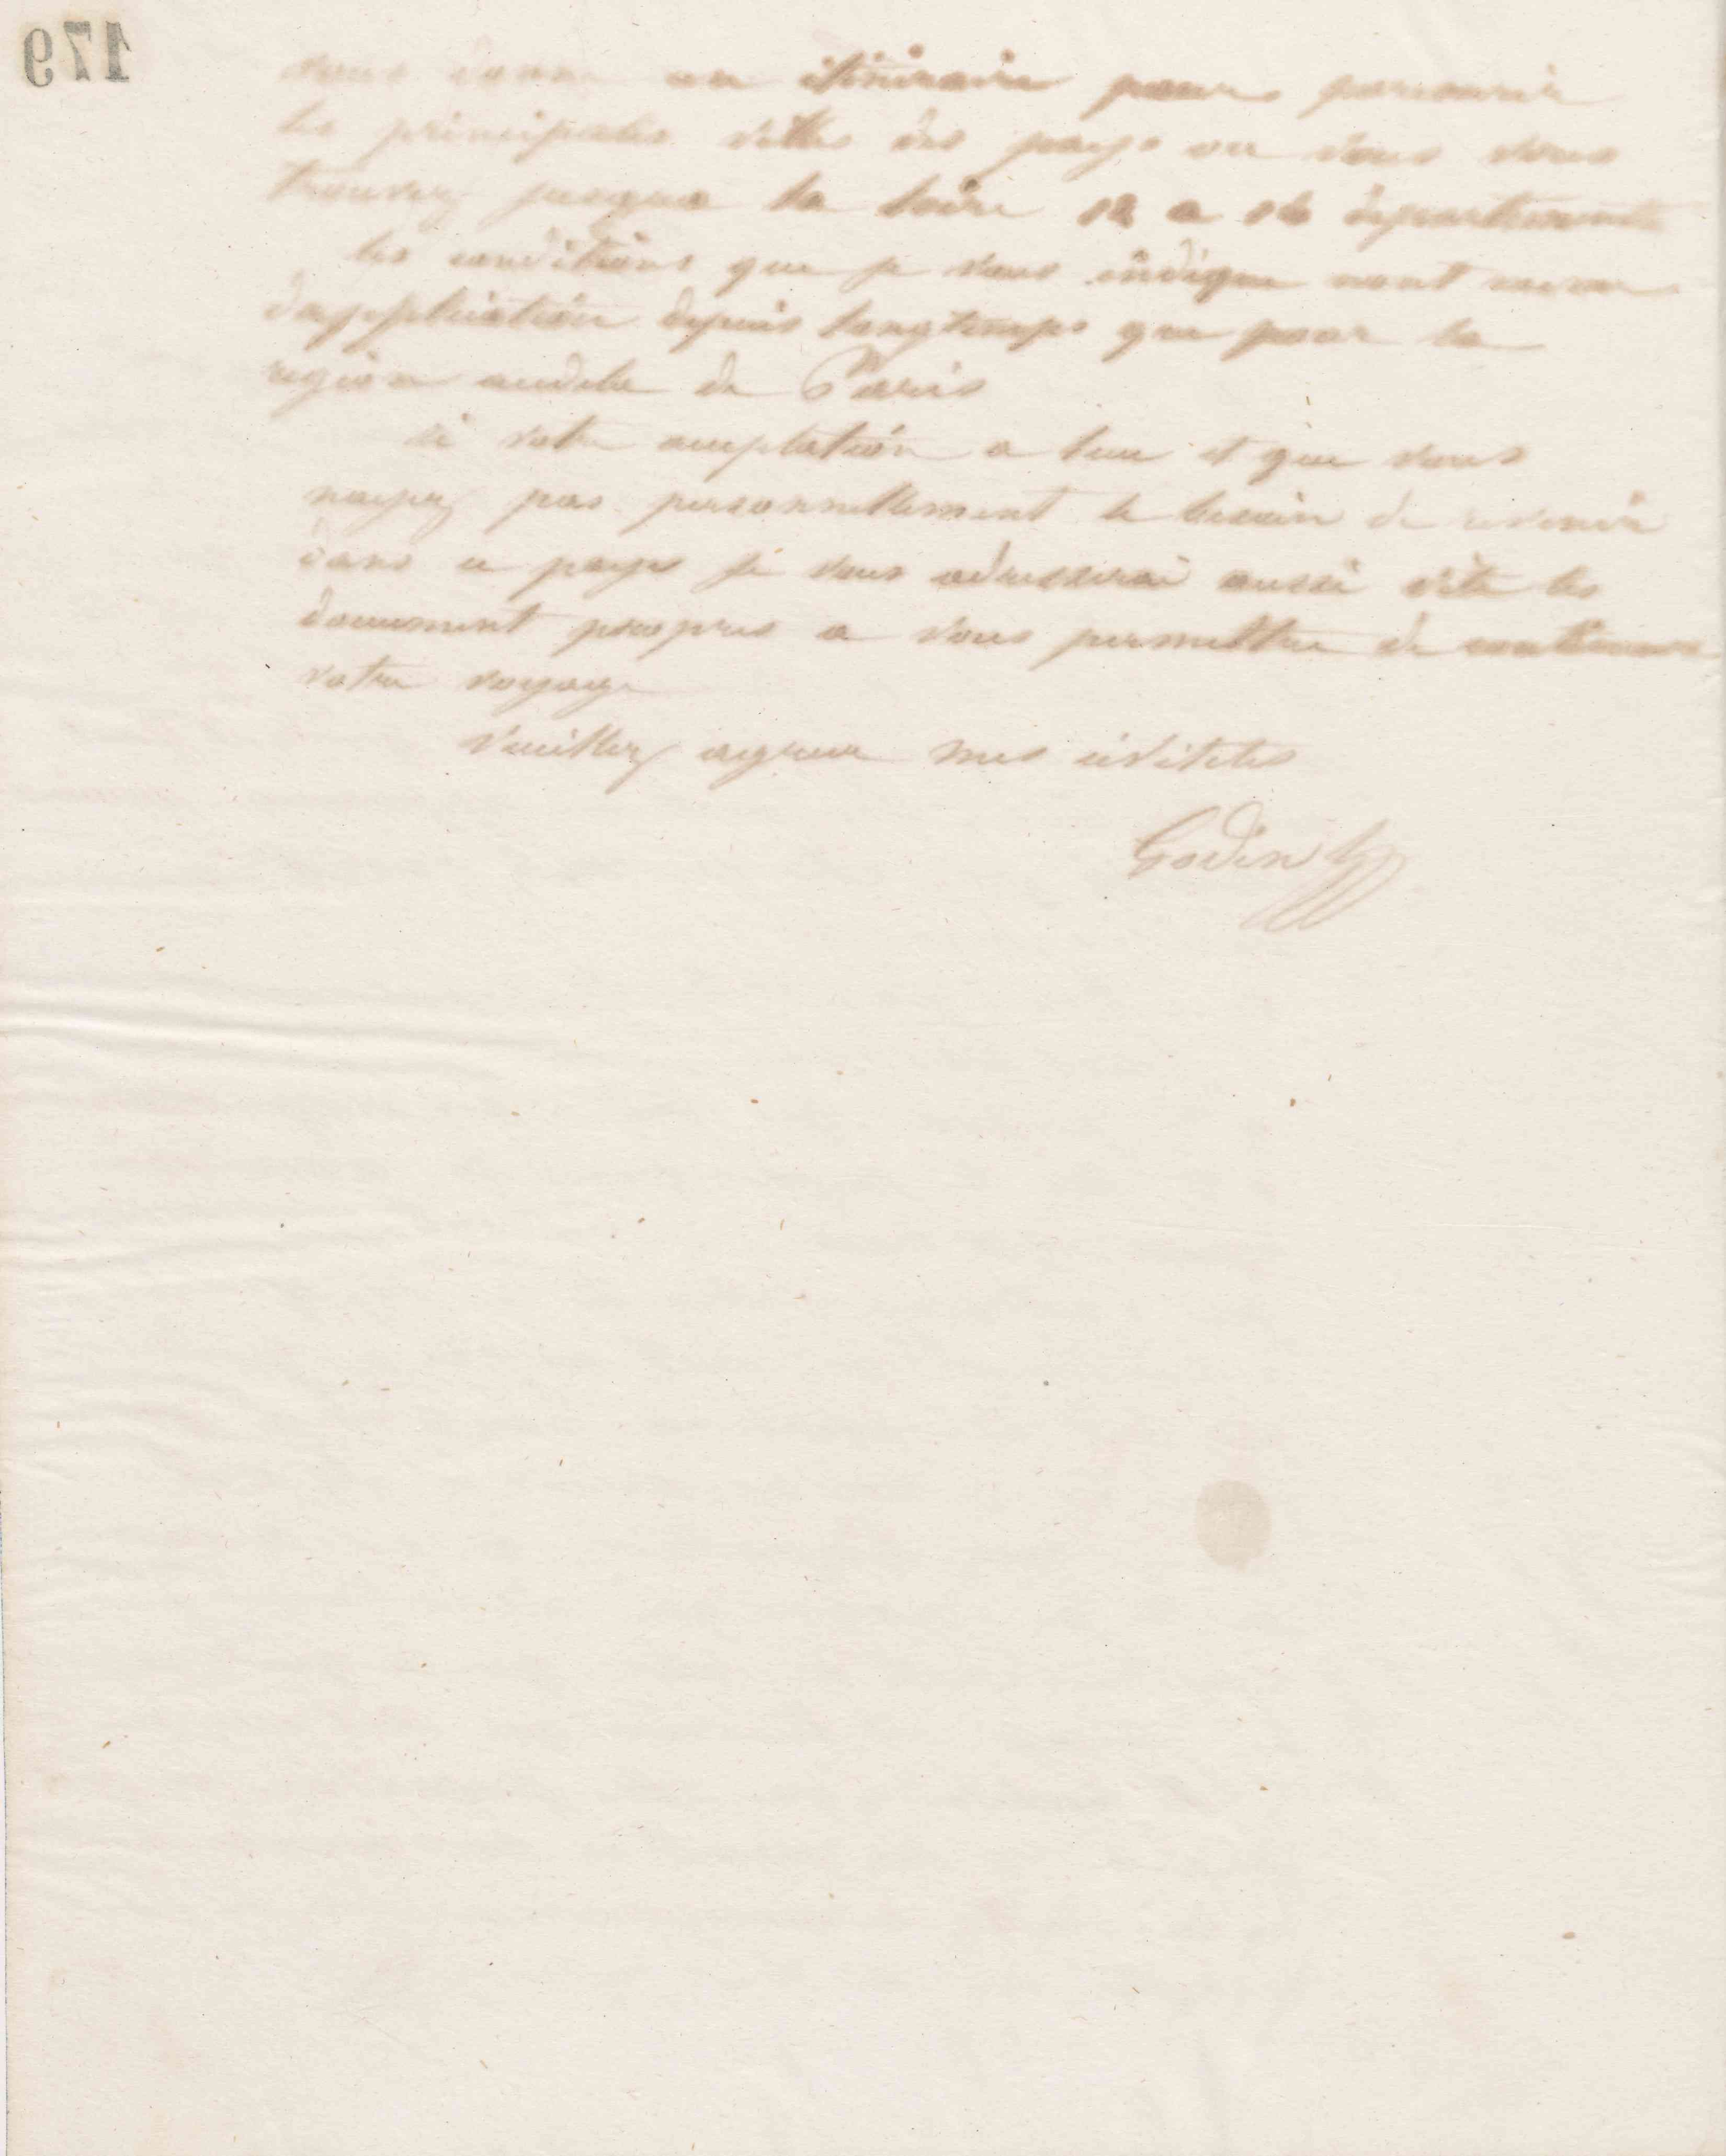 179
vous donne un itineraire pour parcourir
les principales villes des pays ou vous vous
trouvez jusqua la loire 12 a 14 departements
les conditions que je vous indique nont
dapplication depuis longtemps que pour la
region audela de Paris
si votre acceptation a lieu et que vous
nayez pas personnellement le besoin de revenir
dans ce pays je vous adresserai aussi vite les
document propres a vous permettre de continuer
votre voyage
Veuillez agreer mes civilites
Godin